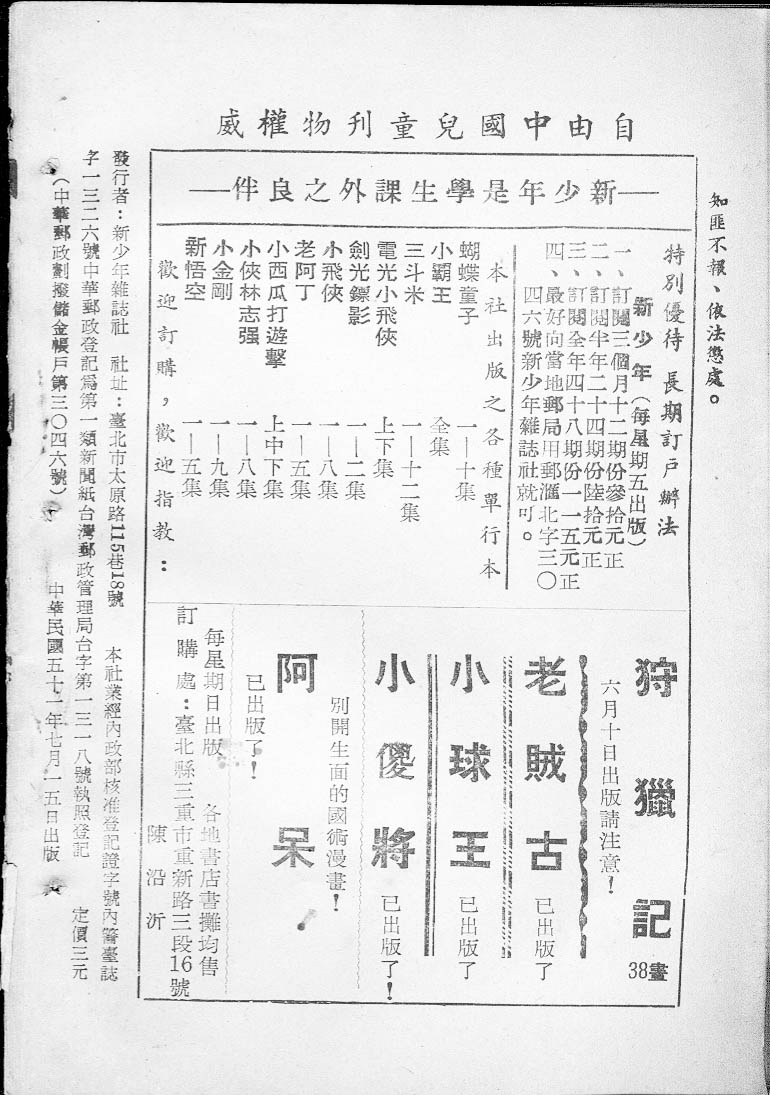 知匪不報、依法懲處。
自由中國兒童刊物權威
—新少年是學生課外之良伴—
特別優待 長期訂戶辦法
新少年(每星期五出版)
一、訂閱三個月十二期份參拾元正
二、訂閱半年二十四期份陸拾元正
三、訂閱全年四十八期份一一五元正
四、最好向當地郵局用郵滙北字三〇
四六號新少年雜誌社就可。
本社出版之各種單行本
蝴蝶童子 一—十集
小霸王 全集
三斗米 一—十二集
電光小飛俠 上下集
劍光鏢影 一—二集
小飛俠 一—八集
老阿丁 一—五集
小西瓜打遊擊 上中下集
小俠林志强 一—八集
小金剛 一—九集
新悟空 一—五集
歡迎訂購,歡迎指教:
狩獵記 38畫
六月十日出版請注意!
老賊古 已出版了
小球王 已出版了
小傻將 已出版了!
別開生面的國術漫畫!
阿呆!
已出版了!
每星期日出版 各地書店書攤均售
訂購處:臺北縣三重市重新路三段16號
陳沿沂
發行者:新少年雜誌社 社址:臺北市太原路115巷18號 本社業經內政部核准登記證字號內警臺誌
字一三二六號中華郵政登記為第一類新聞紙台灣郵政管理局台字第一三一八號執照登記 定價三元
(中華郵政劃撥儲金帳戶第三〇四六號) 中華民國五十一年七月一五日出版